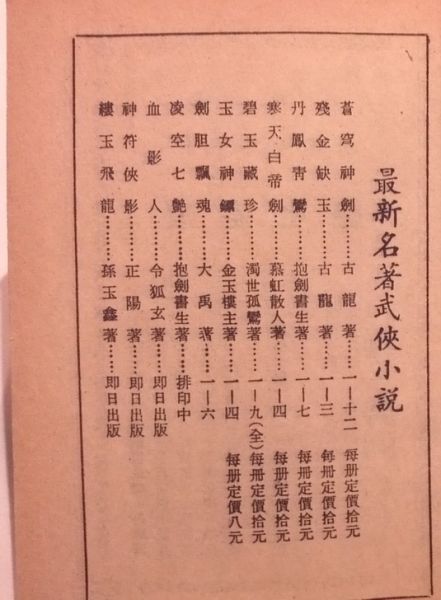 最新名著武俠小説
蒼穹神劍………古龍著……一—十二 每册定價拾元
殘金缺玉………古龍著……一—三 每册定價拾元
丹鳳青鸞………抱劍書生著……一—七 每册定價拾元
寒天白帝劍………慕虹散人著……一—四 每册定價拾元
碧玉藏珍………濁世孤鸞著……一—九(全) 每册定價拾元
玉女神鏢………金玉樓主著……一—四 每册定價八元
劍胆飄魂………大禹著……一—六
凌空七艷………抱劍書生著……排印中
血影人………令狐玄著……即日出版
神符俠影………正陽著……即日出版
縷玉飛龍………孫玉鑫著……即日出版